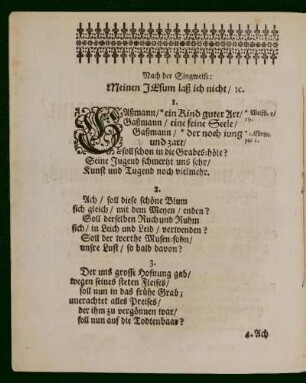 Nach der Singweise:
Meinen JEsum laß ich nicht/ ꝛc.
1.
GAßmann/ * ein Kind guter Art/
Gaßmann/ eine feine Seele/
Gaßmann/ * der noch jung
und zart/
soll schon in die Grabes-höle?
Seine Jugend schmertzt uns sehr/
Kunst und Tugend noch vielmehr.
* Weißh. 8/
19.
2.
Ach/ soll diese schöne Blum
sich gleich/ mit dem Meyen/ enden?
Soll derselben Ruch und Ruhm
sich/ in Leich und Leid/ verwenden?
Soll der werthe Musen-sohn/
unsre Lust/ so bald davon?
3.
Der uns grosse Hofnung gab/
wegen seines steten Fleises/
soll nun in das frühe Grab;
unerachtet alles Preises/
der ihm zu vergönnen war/
soll nun auf die Todtenbaar?
4. Ach